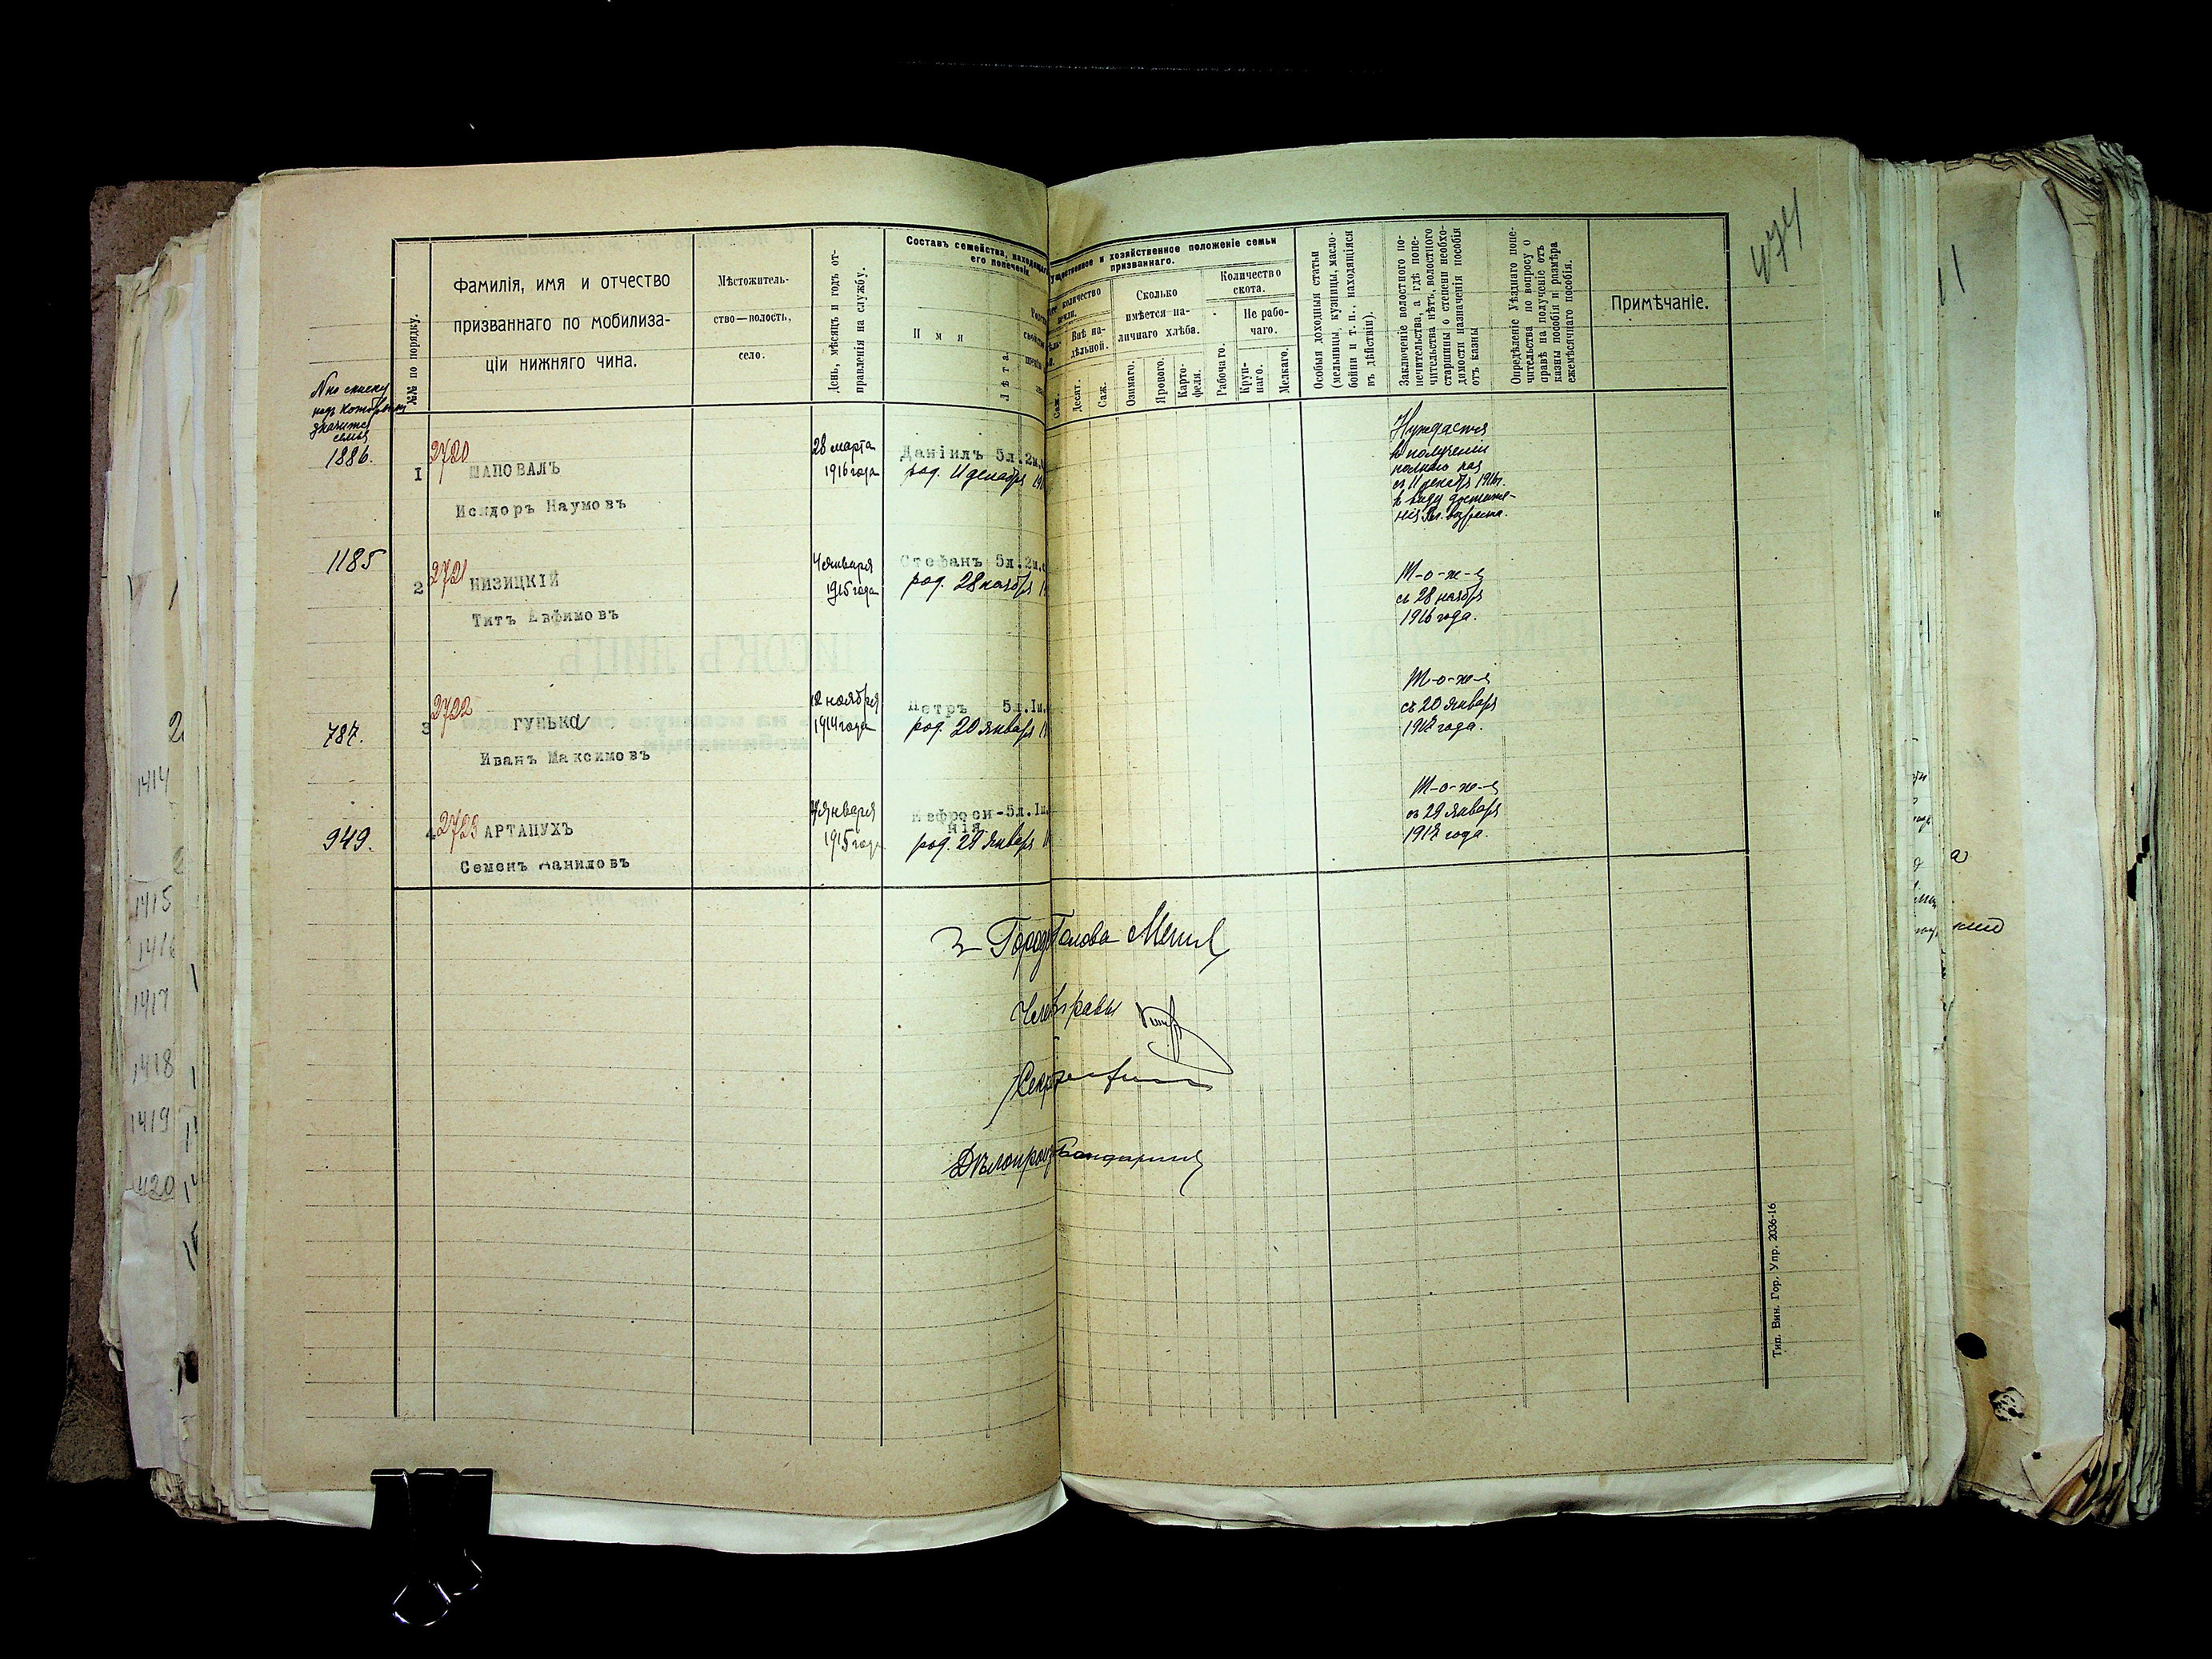 474
№№ по порядку.
Фамилія, имя и отчество
призваннаго по мобилиза-
ціи нижняго чина.
Мѣстожитель-
ство—волость,
село.
День, мѣсяцъ и годъ от-
правленія на службу.
Составъ семейства, находящаг
его попеченіи
Имя
Лѣта.
ущественное и хозяйственное положеніе семьи
призваннаго.
количество
земли.
Внѣ на-
дѣльной.
Саж.
Десят.
Саж.
Сколько
имѣется на-
личнаго хлѣба.
Озимаго.
Ярового.
Карто-
феля.
Количество
скота.
Рабочаго.
Не рабо-
чаго.
Круп-
наго.
Мелкаго.
Особыя доходныя статьи
(мельницы, кузницы, масло-
бойни и т. п., находящіяся
въ дѣйствіи).
Заключеніе волостного по-
печительства, а гдѣ попе-
чительства нѣтъ, волостного
старшины о степени необхо-
димости назначенія пособія
отъ казны
Опредѣленіе Уѣзднаго попе-
чительства по вопросу о
правѣ на полученіе отъ
казны пособія и размѣра
ежемѣсячнаго пособія.
Примѣчаніе.
№ по списку
подъ которымъ
значится
семья
1886.
1
2720
ШАПОВАЛЪ
Исидоръ Наумовъ
28 марта
1916 года
Даніилъ 5л.2м.
род. 11 декабря 19
Нуждается
въ полученіи
полнаго пая
съ 11 декабря 1916г.
въ виду достиже-
нія 5л. возраста.
1185
2
2721
НИЗИЦКІЙ
Титъ Евфимовъ
4 января
1915 года
Стефанъ 5л.2м.
род. 28 ноября 1
Т-о-ж-е
съ 28 ноября
1916 года.
787.
3
2722
ГУНЬКа
Иванъ Максимовъ
12 ноября
1914 года
Петръ 5л.1м.
род. 20 января 19
Т-о-ж-е
съ 20 января
1917 года.
949.
4
2723
АРТАПУХЪ
Семенъ Даниловъ
января
1915 года
Евфроси-5л.1м.
нія
род. 29 января 1
Т-о-ж-е
съ 29 января
1917 года.
Город Голова
Член Управы
Секретарь
Дѣлопроиз
Тип. Вин. Гор. Упр. 2036-16
1414
1415
1416
1417
1418
1419
1420